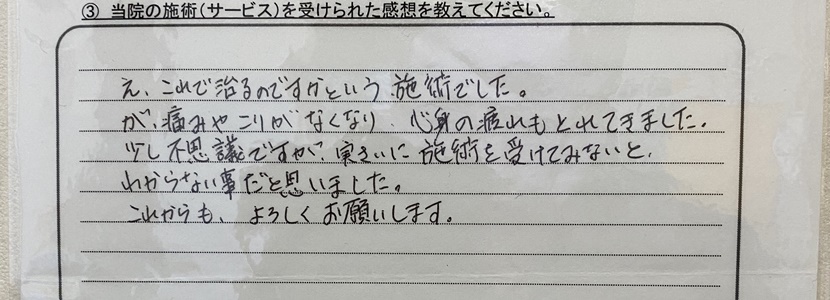 ③ 当院の施術（サービス）を受けられた感想を教えてください。
え、これで治るのですかという施術でした。
が、痛みやこりがなくなり、心身の疲れもとれてきました。
少し不思議ですが、実さいに施術を受けてみないと、
わからない事だと思いました。
これからも、よろしくお願いします。